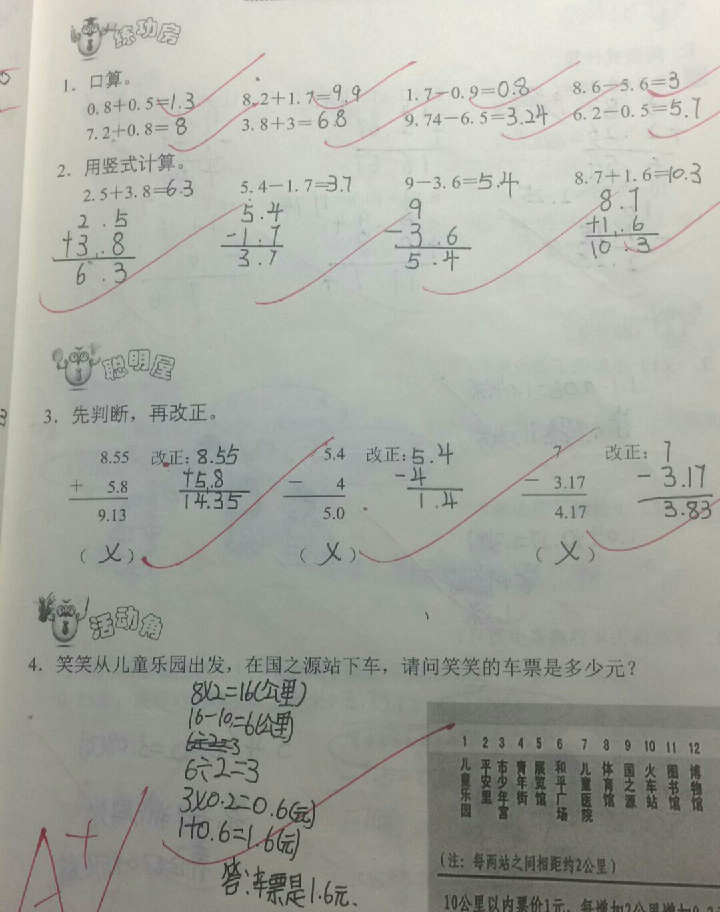 练功房
1. 口算。
0.8+0.5=1.3 8.2+1.7=9.9 1.7-0.9=0.8 8.6-5.6=3
7.2+0.8=8 3.8+3=6.8 9.74-6.5=3.24 6.2-0.5=5.7
2. 用竖式计算。
2.5+3.8=6.3 5.4-1.7=3.7 9-3.6=5.4 8.7+1.6=10.3
2.5 5.4 9 8.7
+3.8 -1.7 -3.6 +1.6
6.3 3.7 5.4 10.3
聪明屋
3. 先判断，再改正。
8.55 改正：8.55 5.4 改正：5.4 7 改正：7
+ 5.8 +5.8 - 4 -4 - 3.17 -3.17
9.13 14.35 5.0 1.4 4.17 3.83
（×） （×） （×）
活动角
4. 笑笑从儿童乐园出发，在国之源站下车，请问笑笑的车票是多少元？
8×2=16(公里)
16-10=6(公里)
6÷2=3
6÷2=3
3×0.2=0.6(元)
1+0.6=1.6(元)
答：车票是1.6元.
A+
1 2 3 4 5 6 7 8 9 10 11 12
儿童乐园 平安里 市少年宫 青年街 展览馆 和平广场 儿童医院 体育馆 国之源 火车站 图书馆 博物馆
(注：每两站之间相距约2公里)
10公里以内票价1元，每增加2公里增加0.2